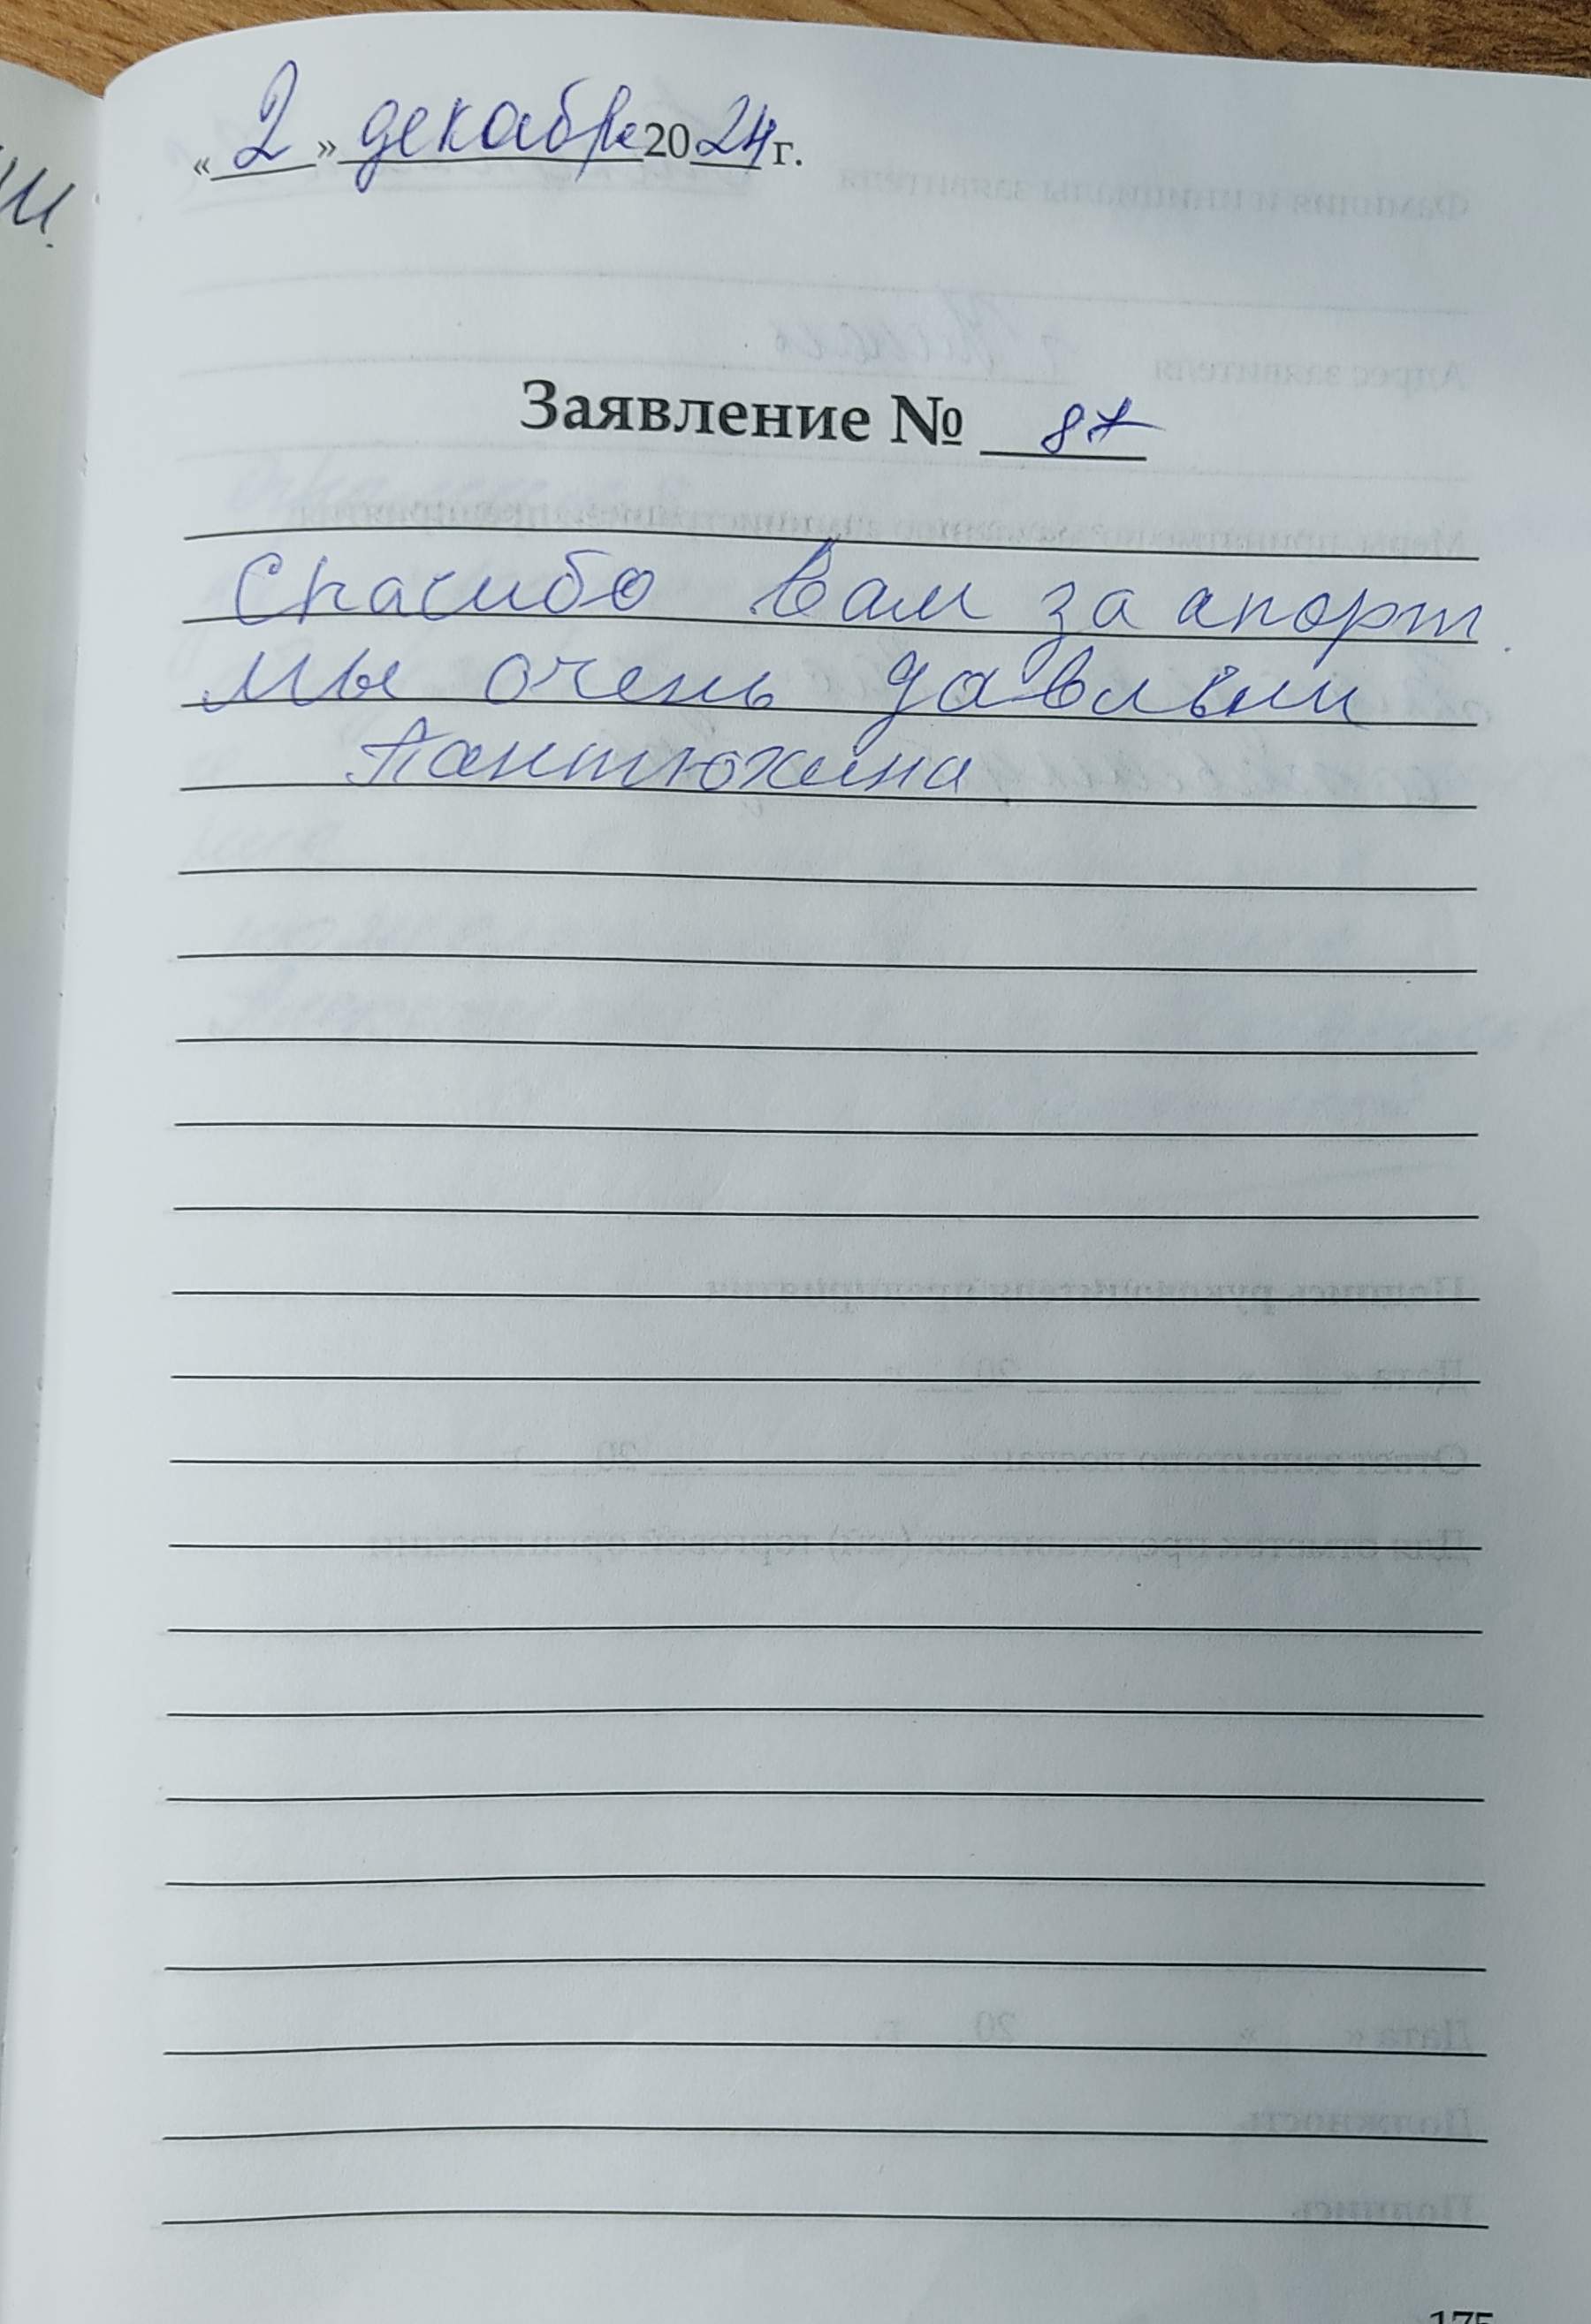 «2» декабря 2024 г.
Заявление № 87
Спасибо Вам за апорт
мы очень давльни
Пантюхина
175